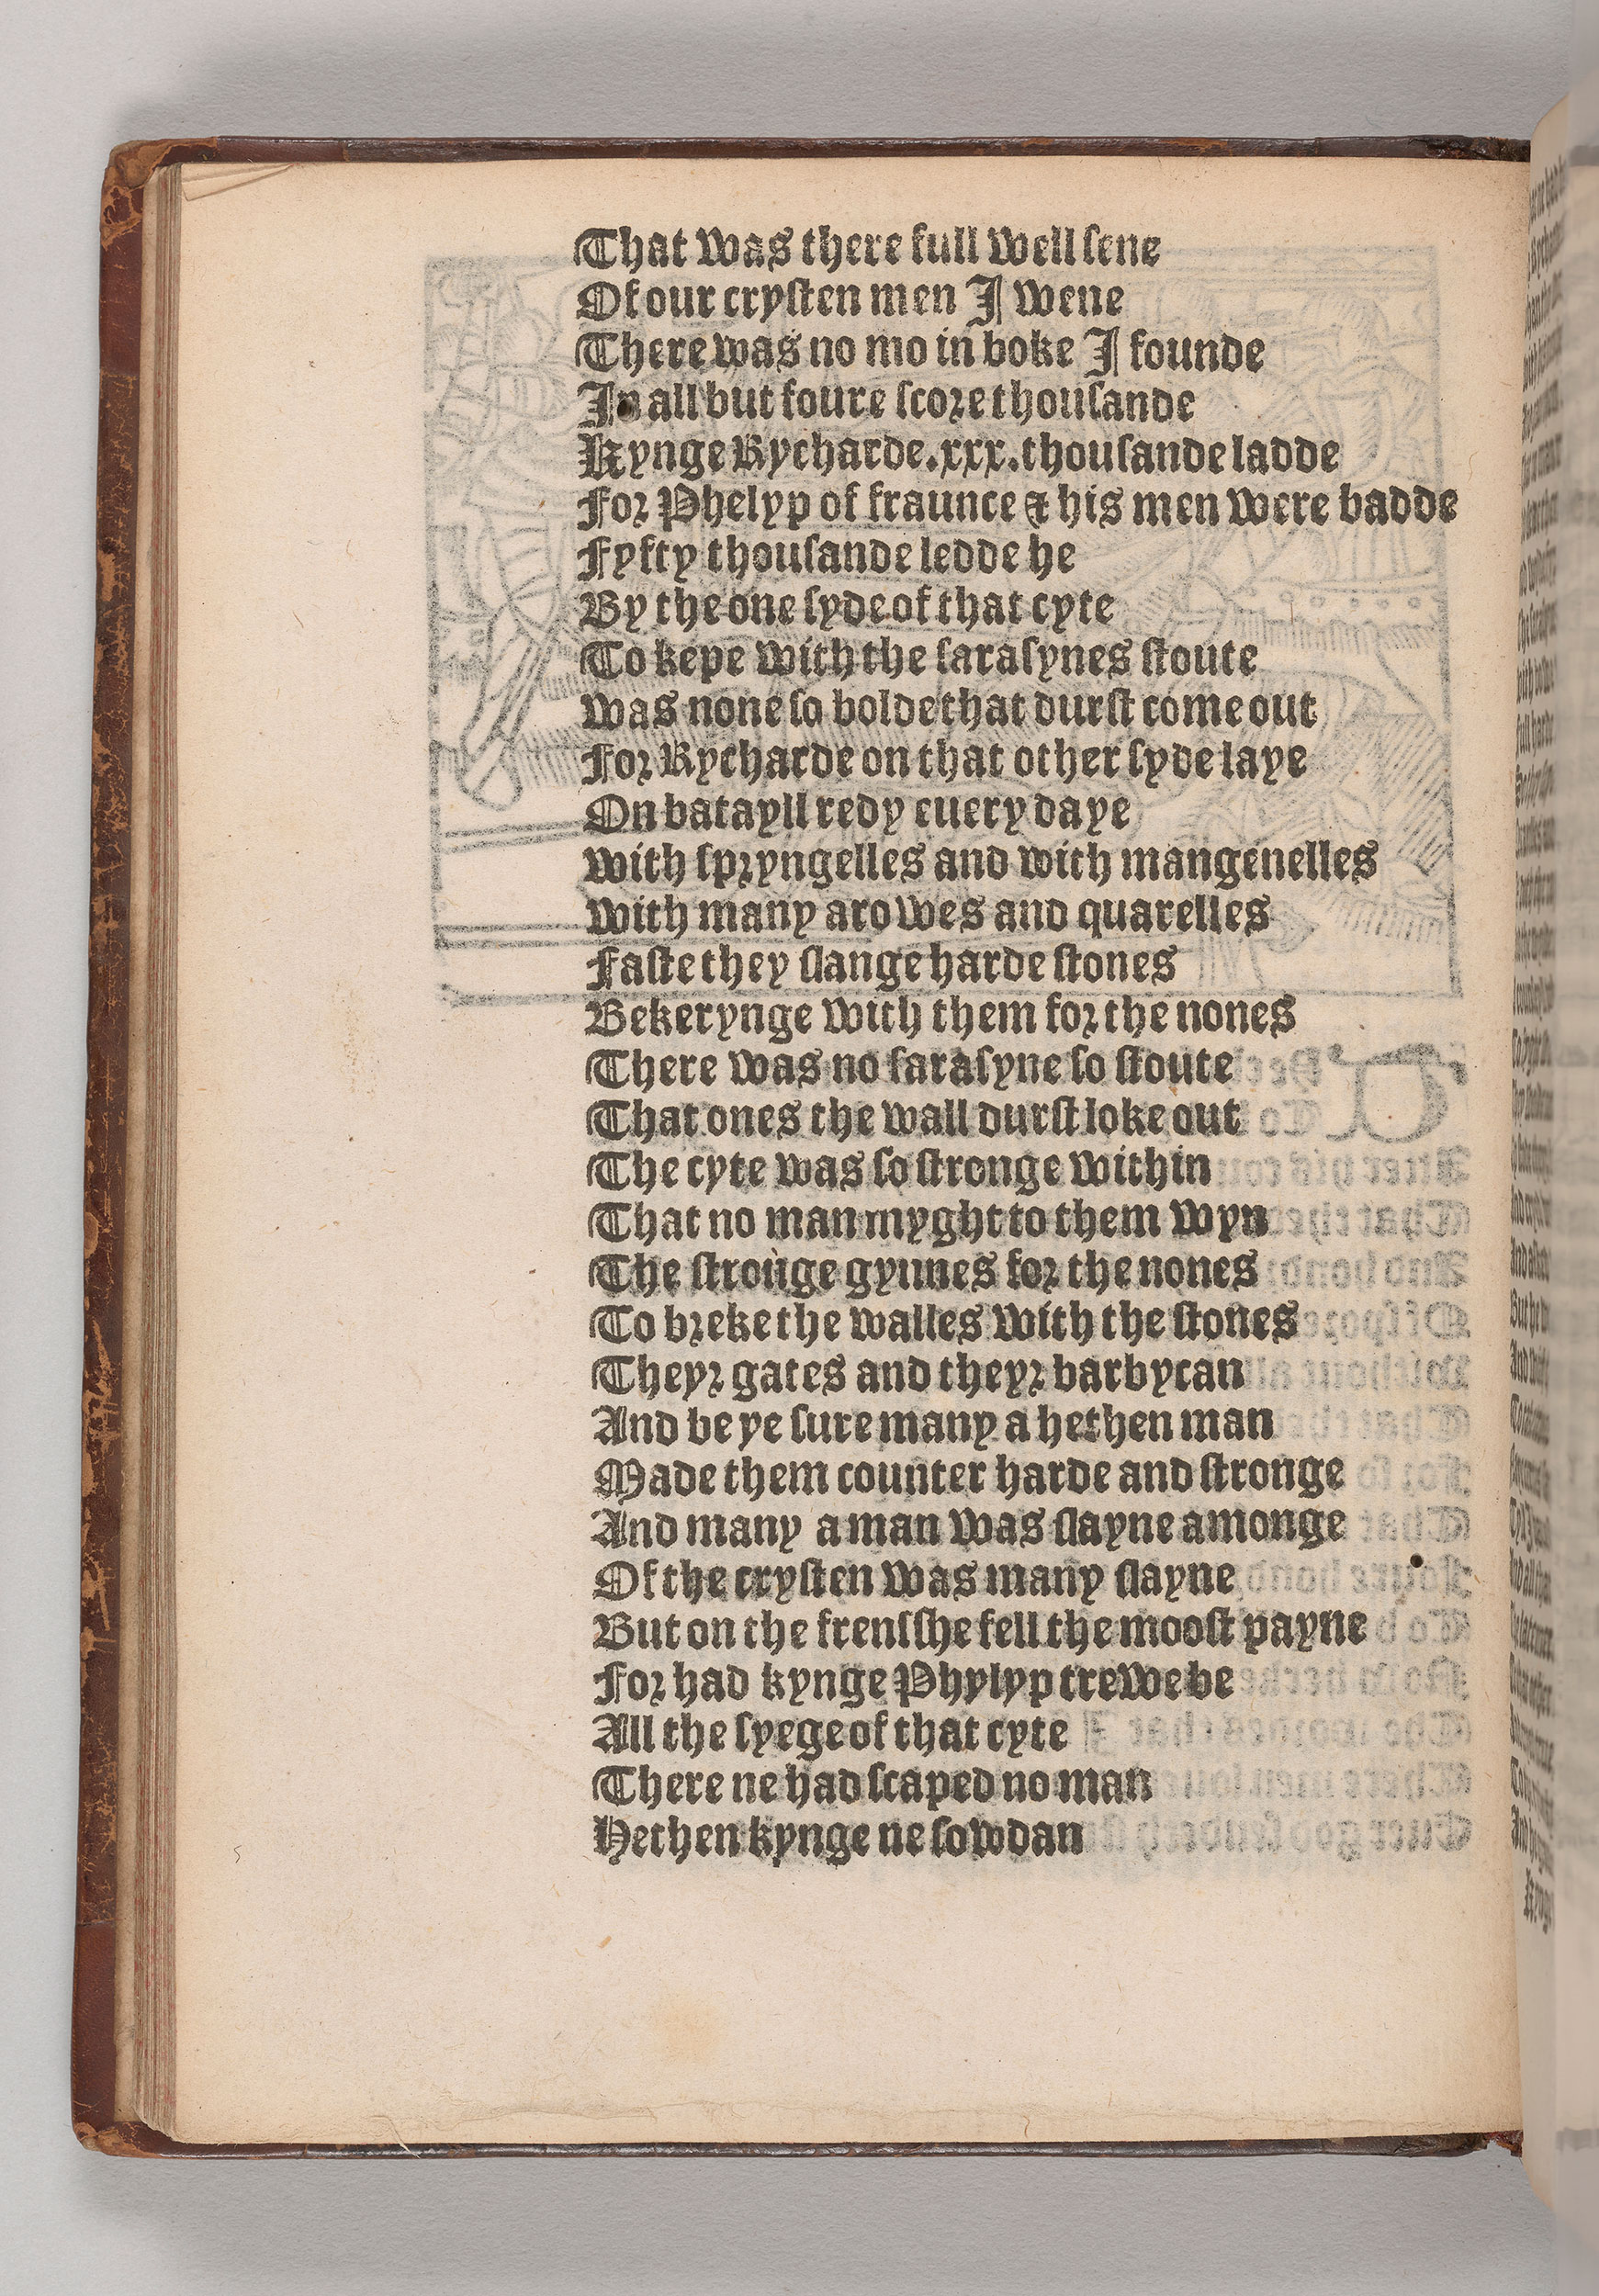 That was there full well sene
Of our crysten men I wene
There was no mo in boke I founde
In all but foure score thousande
Kynge Rycharde .xxx. thousande ladde
For Phelyp of fraunce & his men were badde
Fyfty thousande ledde he
By the one syde of that cyte
To kepe with the sarasynes stoute
was none so bolde that durst come out
For Rycharde on that other syde laye
On batayll redy euery daye
with spryngelles and with mangenelles
with many arowes and quarelles
Faste they slange harde stones
Bekerynge with them for the nones
There was no sarasyne so stoute
That ones the wall durst loke out
The cyte was so stronge within
That no man myght to them wyn
The stronge gynnes for the nones
To breke the walles with the stones
Theyr gates and theyr barbycan
And be ye sure many a hethen man
Made them counter harde and stronge
And many a man was slayne amonge
Of the crysten was many slayne
But on the frensshe fell the moost payne
For had kynge Phylyp trewe be
All the syege of that cyte
There ne had scaped no man
Hethen kynge ne sowdan